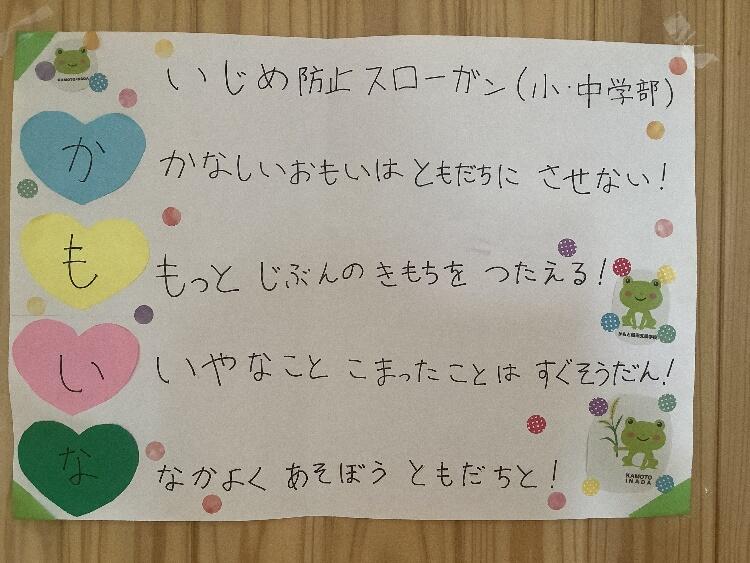 いじめ防止スローガン(小・中学部)
か かなしいおもいは ともだちに させない!
も もっと じぶんの きもちを つたえる!
い いやなこと こまったことは すぐそうだん!
な なかよく あそぼう ともだちと!
KAMOTO INADA